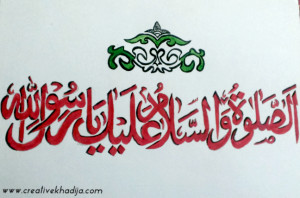 الصلوة والسلام عليك يا رسول الله
www.creativekhadija.com